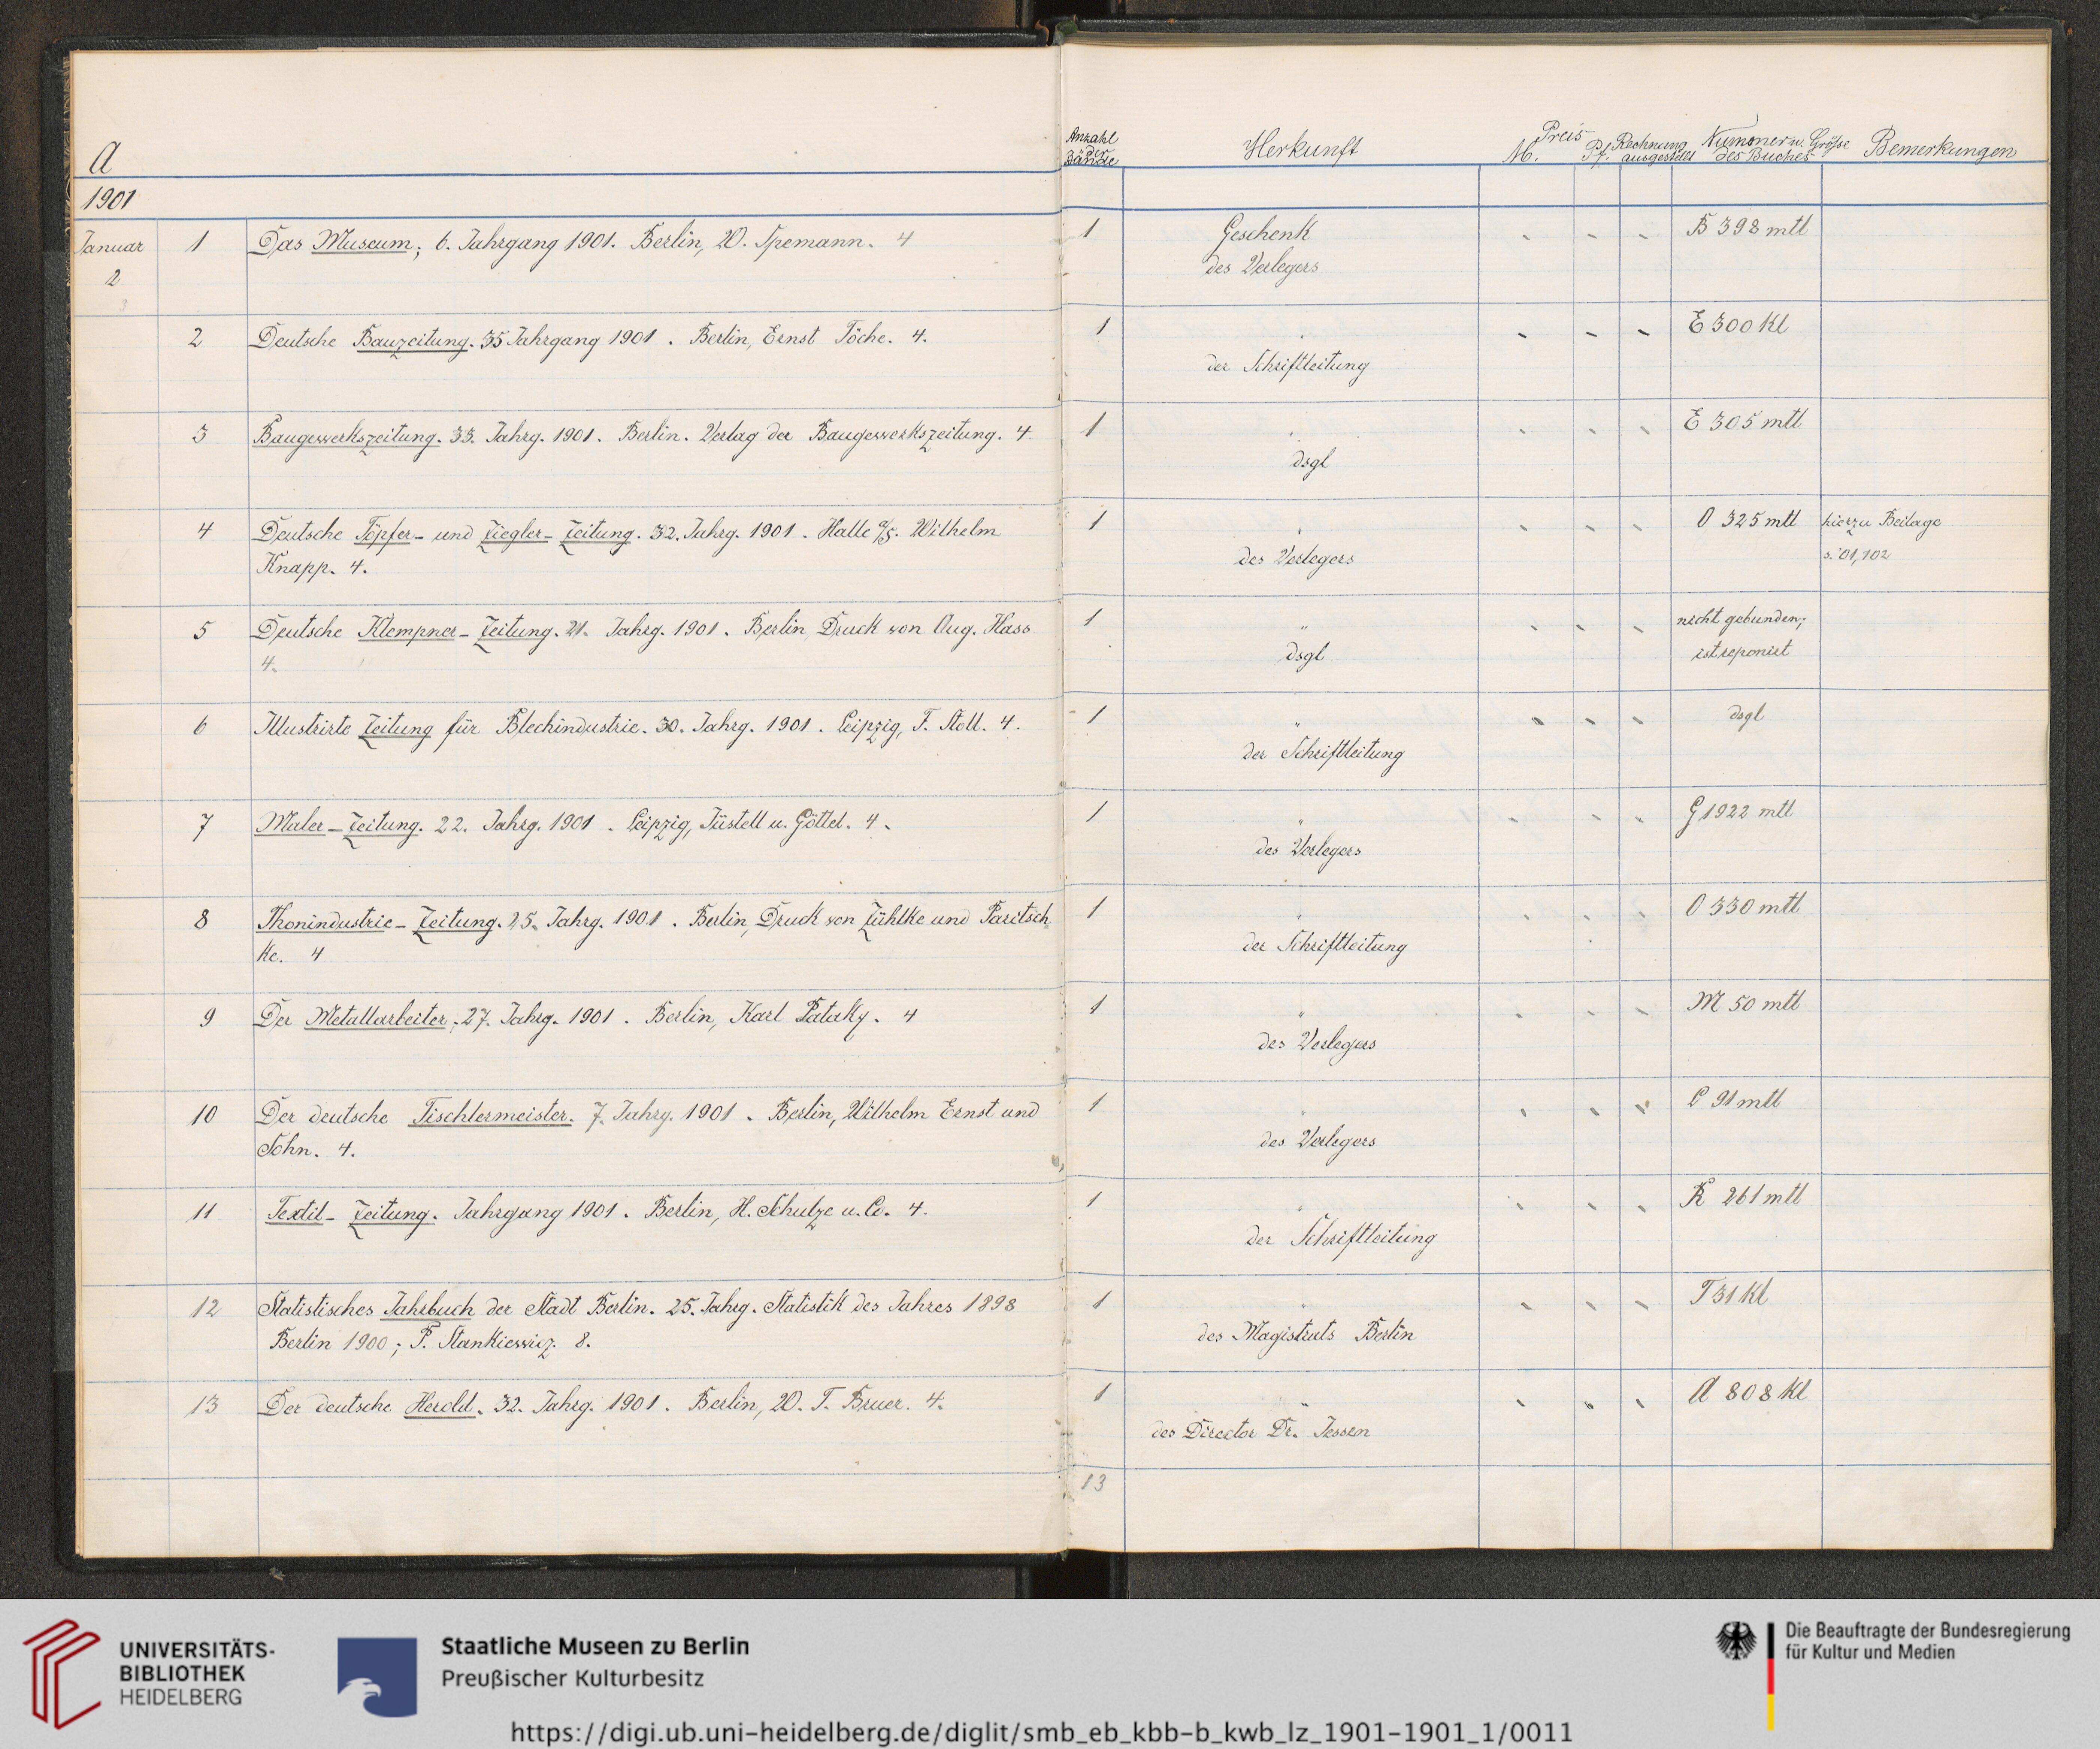 A
1901
Anzahl der Bände Herkunft Preis M. Pf. Rechnung ausgestellt Nummer u. Größe des Buches Bemerkungen
Januar 1 Das Museum; 6. Jahrgang 1901. Berlin, W. Spemann. 4 1 Geschenk - - - B 398 mtl
2 des Verlegers
3
2 Deutsche Bauzeitung. 35 Jahrgang 1901. Berlin, Ernst Töche. 4. 1 " - - - E 300 Kl
der Schriftleitung
3 Baugewerkszeitung. 33. Jahrg. 1901. Berlin. Verlag der Baugewerkszeitung. 4 1 " - - - E 305 mtl
dsgl
4 Deutsche Töpfer- und Ziegler-Zeitung. 32. Jahrg. 1901. Halle a/S. Wilhelm 1 " - - - O 325 mtl hierzu Beilage
Knapp. 4. des Verlegers s. 01,102
5 Deutsche Klempner-Zeitung. 21. Jahrg. 1901. Berlin, Druck von Aug. Hass 1 " - - - nicht gebunden;
4. dsgl ist reponirt
6 Illustrirte Zeitung für Blechindustrie. 30. Jahrg. 1901. Leipzig, F. Stoll. 4. 1 " - - - dsgl
der Schriftleitung
7 Maler-Zeitung. 22. Jahrg. 1901. Leipzig, Jüstell u. Göttel. 4. 1 " - - - G 1922 mtl
des Verlegers
8 Thonindustrie-Zeitung. 25. Jahrg. 1901. Berlin, Druck von Zühlke und Paritsch- 1 " - - - O 330 mtl
ke. 4 der Schriftleitung
9 Der Metallarbeiter. 27. Jahrg. 1901. Berlin, Karl Pataky. 4 1 " - - - M 50 mtl
des Verlegers
10 Der deutsche Tischlermeister. 7. Jahrg. 1901. Berlin, Wilhelm Ernst und 1 " - - - L 91 mtl
Sohn. 4. des Verlegers
11 Textil-Zeitung. Jahrgang 1901. Berlin, H. Schulze u. Co. 4. 1 " - - - R 261 mtl
der Schriftleitung
12 Statistisches Jahrbuch der Stadt Berlin. 25. Jahrg. Statistik des Jahres 1898 1 " - - - T 31 Kl
Berlin 1900; P. Stankiewicz. 8. des Magistrats Berlin
13 Der deutsche Herold. 32. Jahrg. 1901. Berlin, W. T. Bruer. 4. 1 " - - - A 808 Kl
des Director Dr. Jessen
13
UNIVERSITÄTS-
BIBLIOTHEK
HEIDELBERG
Staatliche Museen zu Berlin
Preußischer Kulturbesitz
Die Beauftragte der Bundesregierung
für Kultur und Medien
https://digi.ub.uni-heidelberg.de/diglit/smb_eb_kbb-b_kwb_lz_1901-1901_1/0011